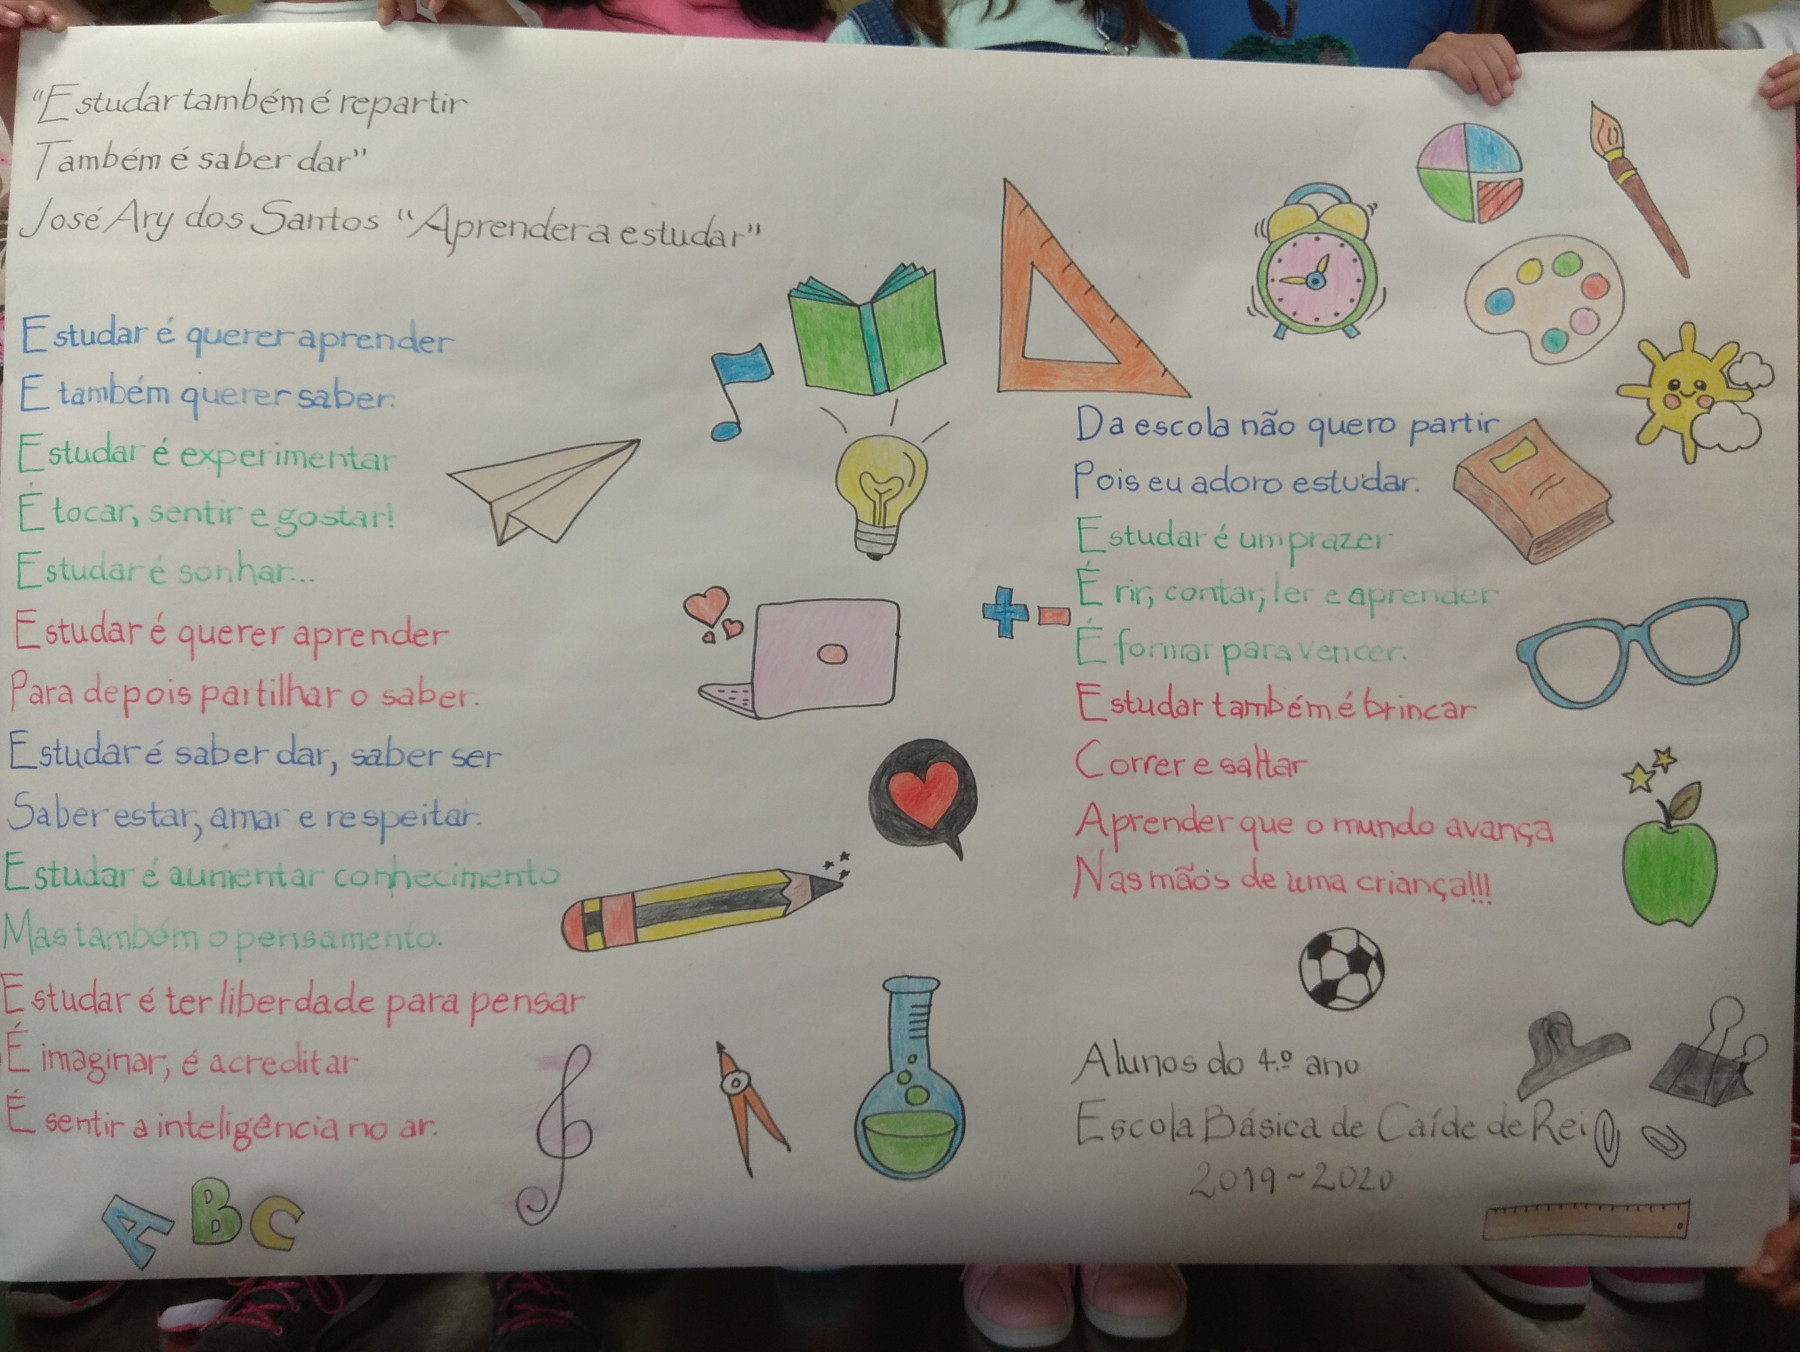 “Estudar também é repartir
Também é saber dar”
José Ary dos Santos “Aprender a estudar”
Estudar é querer aprender
E também querer saber.
Estudar é experimentar
É tocar, sentir e gostar!
Estudar é sonhar...
Estudar é querer aprender
Para depois partilhar o saber.
Estudar é saber dar, saber ser
Saber estar, amar e respeitar.
Estudar é aumentar conhecimento
Mas também o pensamento.
Estudar é ter liberdade para pensar
É imaginar, é acreditar
É sentir a inteligência no ar.
A B C
Da escola não quero partir
Pois eu adoro estudar.
Estudar é um prazer
É rir, contar, ler e aprender
É formar para vencer.
Estudar também é brincar
Correr e saltar
Aprender que o mundo avança
Nas mãos de uma criança!!!
Alunos do 4.º ano
Escola Básica de Caíde de Rei
2019~2020